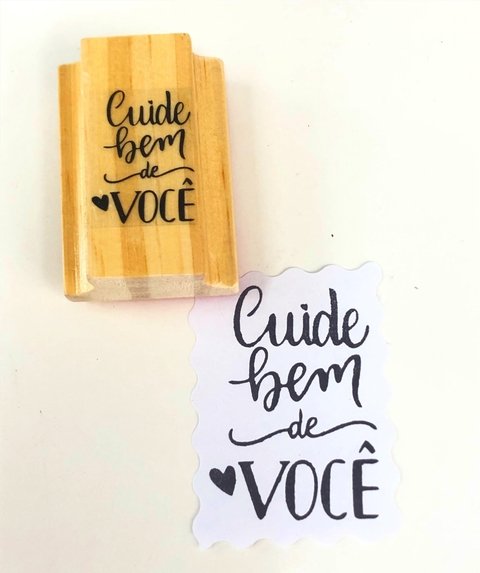 Cuide
bem
de
VOCÊ
Cuide
bem
de
VOCÊ